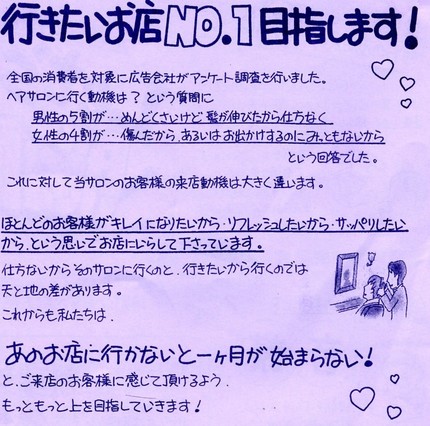 行きたいお店NO.1目指します!
全国の消費者を対象に広告会社がアンケート調査を行いました。
ヘアサロンに行く動機は?という質問に
男性の5割が…めんどくさいけど髪が伸びたから仕方なく
女性の4割が…傷んだから、あるいはお出かけするのにみっともないから
という回答でした。
これに対して当サロンのお客様の来店動機は大きく違います。
ほとんどのお客様がキレイになりたいから・リフレッシュしたいから・サッパリしたい
から、という思いでお店にいらして下さっています。
仕方ないからそのサロンに行くのと、行きたいから行くのでは
天と地の差があります。
これからも私たちは、
あのお店に行かないと一ヶ月が始まらない!
と、ご来店のお客様に感じて頂けるよう、
もっともっと上を目指していきます!